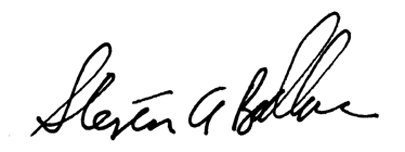 Steven A Ballmer